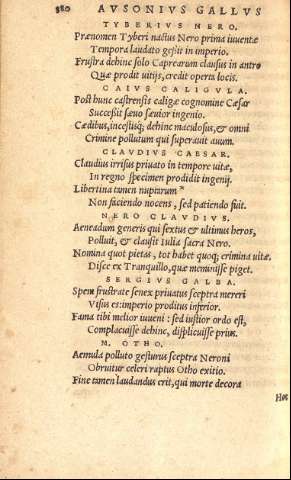 380 AVSONIVS GALLVS
TYBERIVS NERO.
Prænomen Tyberi nactus Nero prima iuuentæ
Tempora laudato gessit in imperio.
Frustra dehinc solo Caprearum clausus in antro
Quæ prodit uitijs, credit operta locis.
CAIVS CALIGVLA.
Post hunc castrensis caligæ cognomine Cæsar
Successit sæuo sæuior ingenio.
Cædibus, incestisq; dehinc maculosus, & omni
Crimine pollutum qui superauit auum.
CLAVDIVS CAESAR.
Claudius irrisus priuato in tempore uitæ,
In regno specimen prodidit ingenij.
Libertina tamen nuptarum
Non faciendo nocens, sed patiendo fuit.
NERO CLAVDIVS.
Aeneadum generis qui sextus & ultimus heros,
Polluit, & clausit Iulia sacra Nero.
Nomina quot pietas, tot habet quoq; crimina uitæ.
Disce ex Tranquillo, quæ meminisse piget.
SERGIVS GALBA.
Spem frustrate senex priuatus sceptra mereri
Visus es: imperio proditus inferior.
Fama tibi melior iuueni: sed iustior ordo est,
Complacuisse dehinc, displicuisse prius.
M. OTHO.
Aemula polluto gesturus sceptra Neroni
Obruitur celeri raptus Otho exitio.
Fine tamen laudandus erit, qui morte decora
Hoc